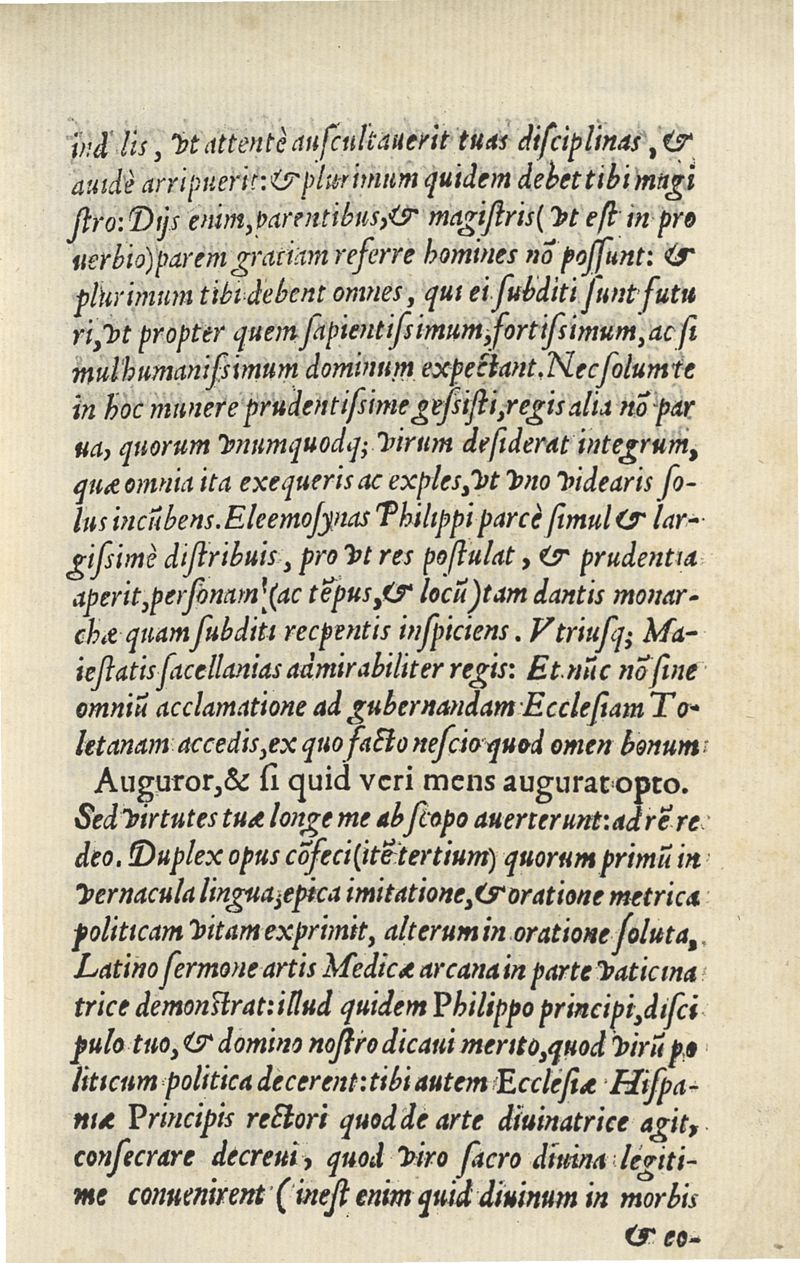 ind lis, vt attentè auſcultauerit tuas diſciplinas, &
auidè arripuerit: & plurimum quidem debet tibi magi
ſtro: Dijs enim, parentibus, & magiſtris (vt eſt in pro
uerbio) parem gratiam referre homines nõ poſſunt: &
plurimum tibi debent omnes, qui ei ſubditi ſunt futu
ri, vt propter quem ſapientiſsimum, fortiſsimum, ac ſi
mul humaniſsimum dominum expectant. Nec ſolum te
in hoc munere prudentiſsime geſsiſti, regis alia nõ par
ua, quorum vnumquodq; virum deſiderat integrum,
quæ omnia ita exequeris ac exples, vt vno videaris ſo-
lus incũbens. Eleemoſynas Philippi parcè ſimul & lar-
giſsimè diſtribuis, pro vt res poſtulat, & prudentia
aperit, perſonam (ac tẽpus, & locũ) tam dantis monar-
chæ quam ſubditi recpentis inſpiciens. Vtriuſq; Ma-
ieſtatis ſacellanias admirabiliter regis: Et nũc nõ ſine
omniũ acclamatione ad gubernandam Eccleſiam To-
letanam accedis, ex quo facto neſcio quod omen bonum
Auguror, & ſi quid veri mens augurat opto.
Sed virtutes tuæ longe me ab ſcopo auerterunt: ad rẽ re
deo. Duplex opus cõfeci (itẽ tertium) quorum primũ in
vernacula lingua, epica imitatione, & oratione metrica
politicam vitam exprimit, alterum in oratione ſoluta,
Latino ſermone artis Medicæ arcana in parte vaticina
trice demonſtrat: illud quidem Philippo principi, diſci
pulo tuo, & domino noſtro dicaui merito, quod virũ po
liticum politica decerent: tibi autem Eccleſiæ Hiſpa-
niæ Principis rectori quod de arte diuinatrice agit,
conſecrare decreui, quod viro ſacro diuina legiti-
me conuenirent (ineſt enim quid diuinum in morbis
& eo-